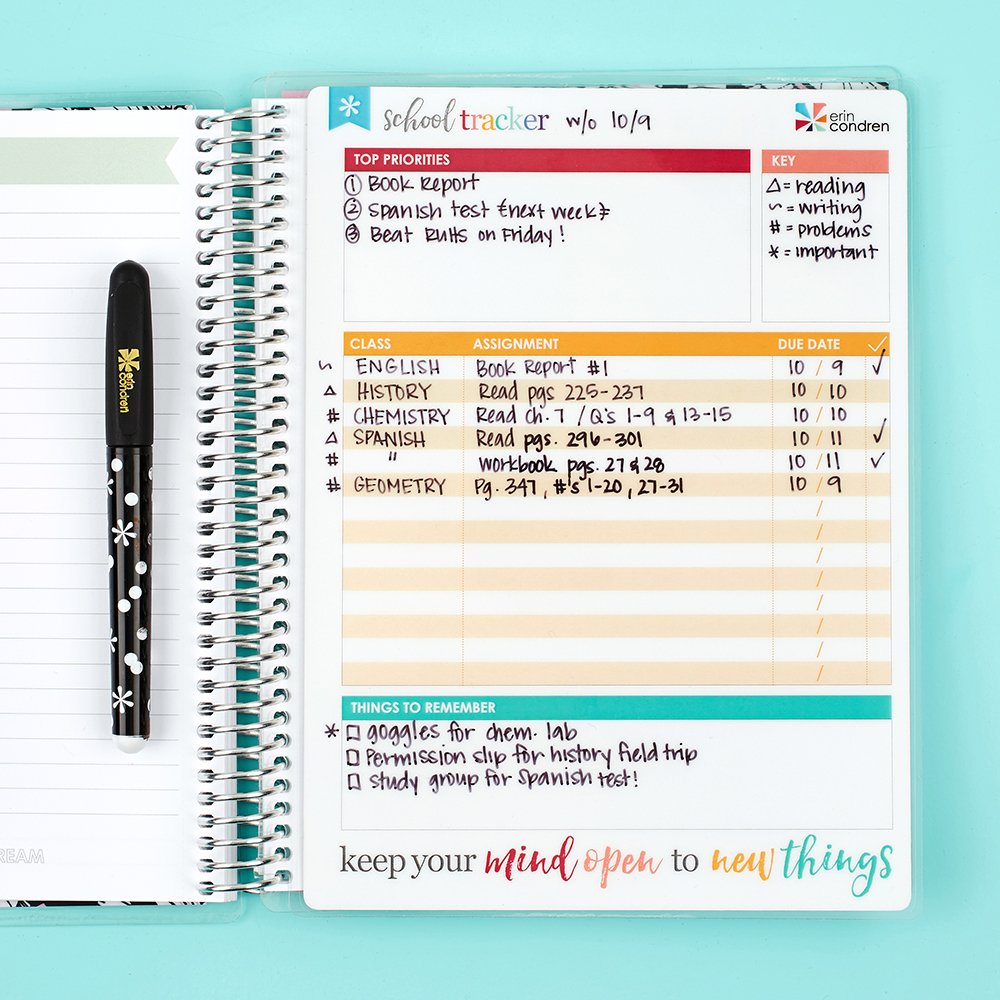 school tracker w/o 10/9
erin condren
TOP PRIORITIES
① Book Report
② Spanish test {next week}
③ Beat Rutts on Friday!
KEY
△ = reading
~ = writing
# = problems
* = important
CLASS ASSIGNMENT DUE DATE ✓
~ ENGLISH Book Report #1 10 / 9 ✓
△ HISTORY Read pgs 225-237 10 / 10
# CHEMISTRY Read ch. 7 / Q's 1-9 & 13-15 10 / 10
△ SPANISH Read pgs. 296-301 10 / 11 ✓
# " Workbook pgs. 27 & 28 10 / 11 ✓
# GEOMETRY Pg. 347, #'s 1-20, 27-31 10 / 9
THINGS TO REMEMBER
* □ goggles for chem. lab
□ Permission slip for history field trip
□ study group for Spanish test!
keep your mind open to new things
erin condren
REAM